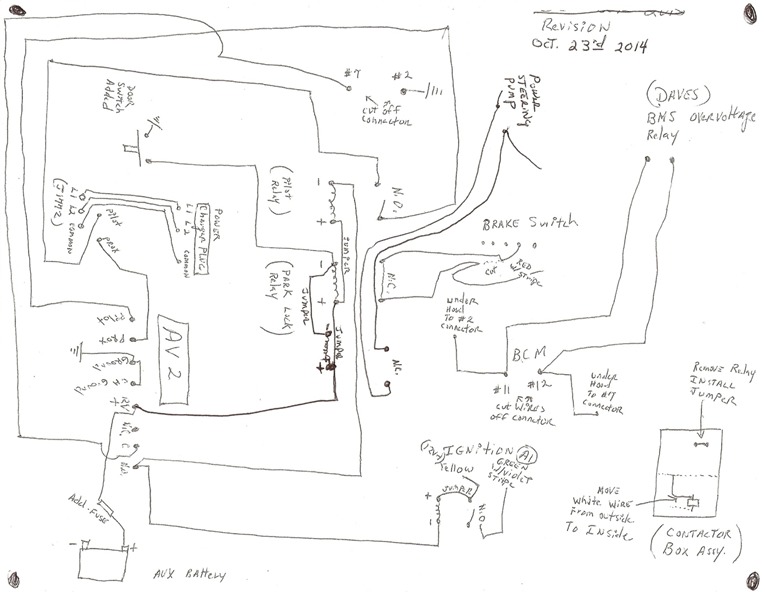 Revision
Oct. 23rd 2014
#7
#2
cut off
connector
Power
Steering
Pump
(Daves)
BMS overvoltage
Relay
Door
Switch
Added
(Pilot
Relay)
-
+
N.O.
Jumper
(Park Lock
Relay)
-
+
Jumper
Jumper
+
N.C.
N.C.
Brake Switch
cut
Red
w/stripe
L1
L2
common
(J1772)
Pilot
Prox
Power
Charger Plug
L1
L2
common
AV2
Pilot
Prox
Ground
Ch Ground
+
N/C
C
Add. Fuse
-
+
Aux Battery
under
Hood
To #2
connector
BCM
#11
#12
cut wires
off connector
under
Hood
To #7
connector
Ignition (A1)
Yellow
Green
w/violet
stripe
Jumper
+
-
N.O.
Remove Relay
Install
Jumper
Move
White wire
From outside
To Inside
(Contactor
Box Assy.)